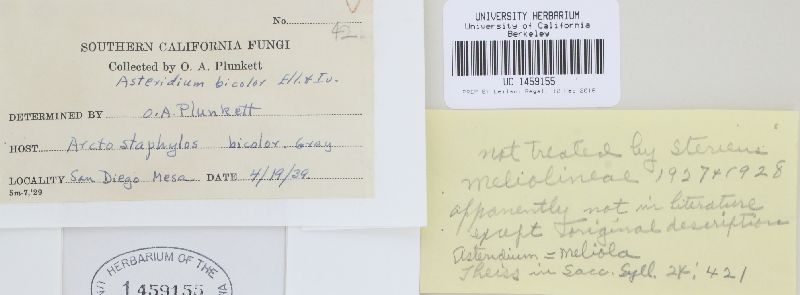 No.
42
SOUTHERN CALIFORNIA FUNGI
Collected by O. A. Plunkett
Asteridium bicolor Ell. & Ev.
DETERMINED BY O. A. Plunkett
HOST Arctostaphylos bicolor Gray
LOCALITY San Diego Mesa DATE 4/19/39
5m-7,'29
UNIVERSITY HERBARIUM
University of California
Berkeley
UC 1459155
not treated by Stevens
Meliolineae 1927 & 1928
apparently not in literature
except original description
Asteridium = Meliola
Theiss in Sacc. Syll. 24: 421
HERBARIUM OF THE
1459155